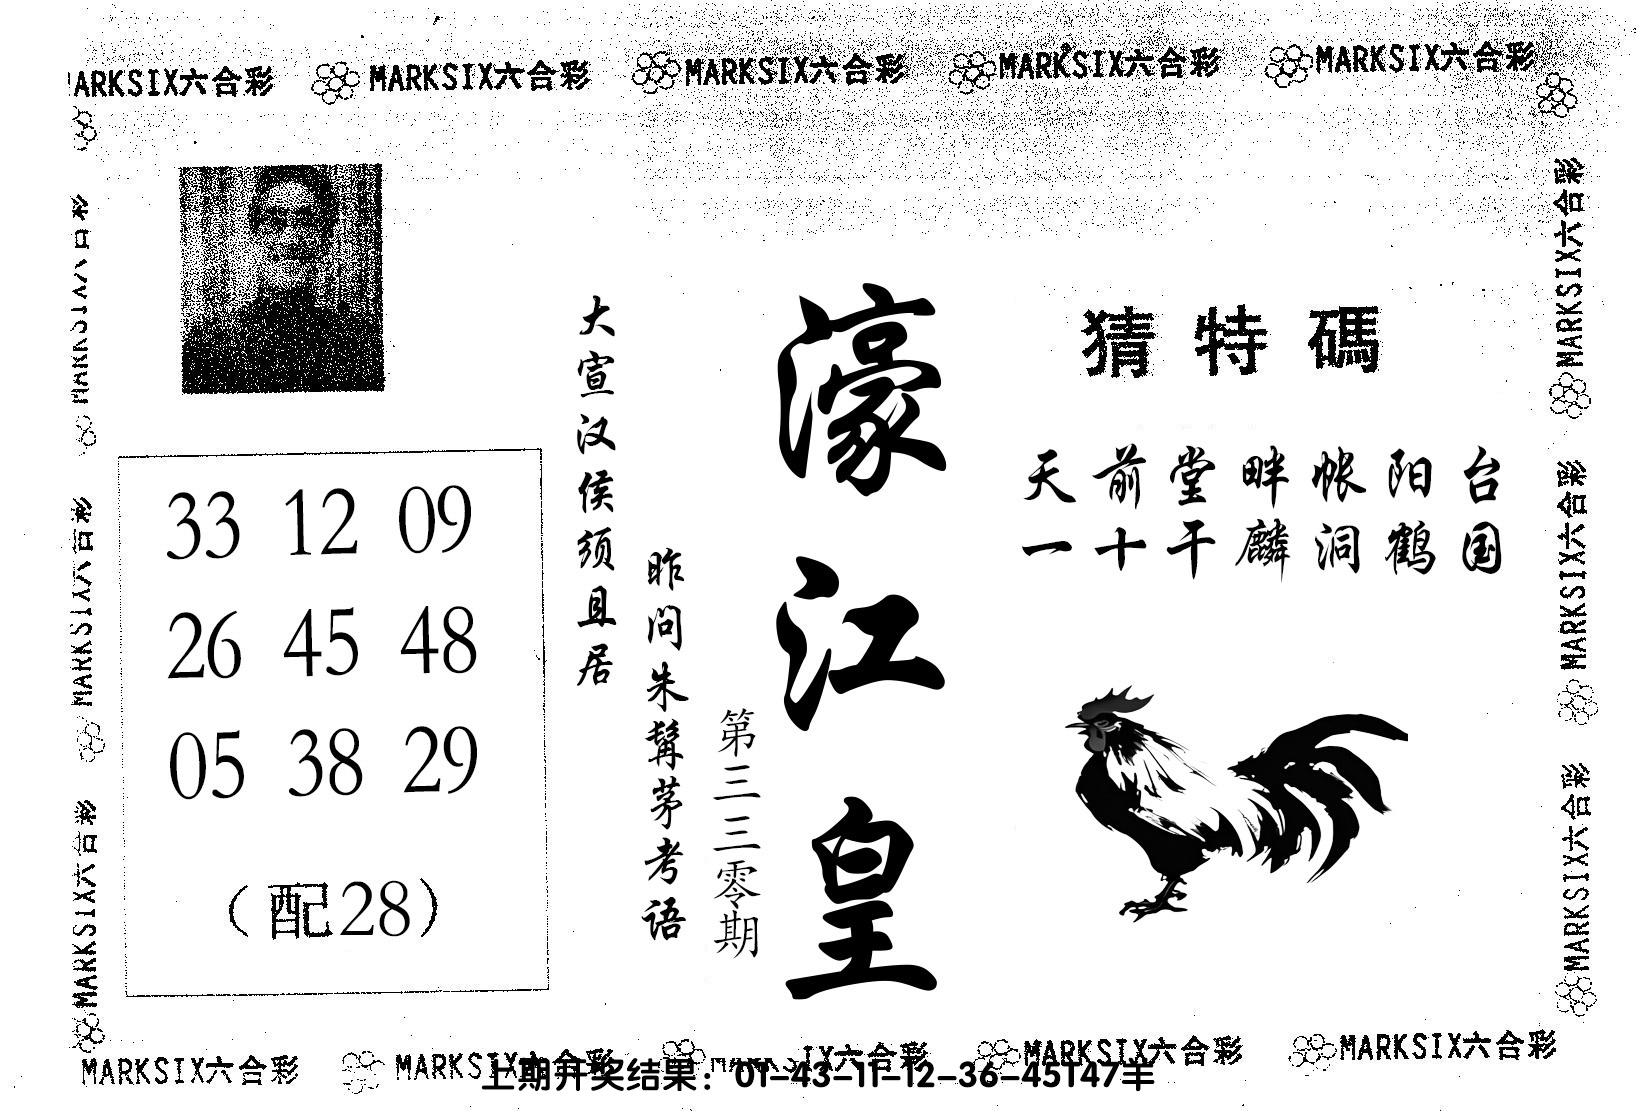 MARKSIX六合彩 MARKSIX六合彩 MARKSIX六合彩 MARKSIX六合彩 MARKSIX六合彩
MARKSIX六合彩
MARKSIX六合彩
MARKSIX六合彩
MARKSIX六合彩
MARKSIX六合彩
MARKSIX六合彩
33 12 09
26 45 48
05 38 29
(配28)
大宣汉侯须且居
昨问朱髯茅考语
第三三零期
濠江皇
猜特碼
天前堂畔帐阳台
一十干麟洞鹤国
MARKSIX六合彩 MARKSIX六合彩 IX六合彩 MARKSIX六合彩 MARKSIX六合彩
上期开奖结果：01-43-11-12-36-45T47羊